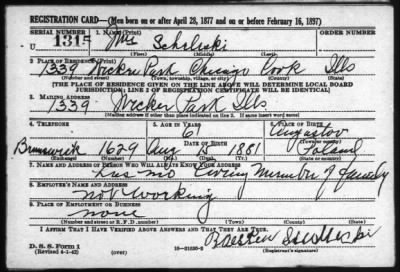 REGISTRATION CARD—(Men born on or after April 28, 1877 and on or before February 16, 1897)
SERIAL NUMBER 1. NAME (Print) ORDER NUMBER
U 1315
(First) (Middle) (Last)
2. PLACE OF RESIDENCE (Print)
1339 Wicker Park Chicago Cook Ills
(Number and street) (Town, township, village, or city) (County) (State)
[THE PLACE OF RESIDENCE GIVEN ON THE LINE ABOVE WILL DETERMINE LOCAL BOARD
JURISDICTION; LINE 2 OF REGISTRATION CERTIFICATE WILL BE IDENTICAL]
3. MAILING ADDRESS
1339 Wicker Park Ills
(Mailing address if other than place indicated on line 2. If same insert word same)
4. TELEPHONE 5. AGE IN YEARS 6. PLACE OF BIRTH
61 Augustov
DATE OF BIRTH (Town or county)
Brunswick 1629 Aug 15 1881 Poland
(Exchange) (Number) (Mo.) (Day) (Yr.) (State or country)
7. NAME AND ADDRESS OF PERSON WHO WILL ALWAYS KNOW YOUR ADDRESS
has no living member of family
8. EMPLOYER'S NAME AND ADDRESS
not working
9. PLACE OF EMPLOYMENT OR BUSINESS
none
(Number and street or R. F. D. number) (Town) (County) (State)
I AFFIRM THAT I HAVE VERIFIED ABOVE ANSWERS AND THAT THEY ARE TRUE.
D. S. S. Form 1
(Revised 4-1-42) (over) (Registrant's signature)